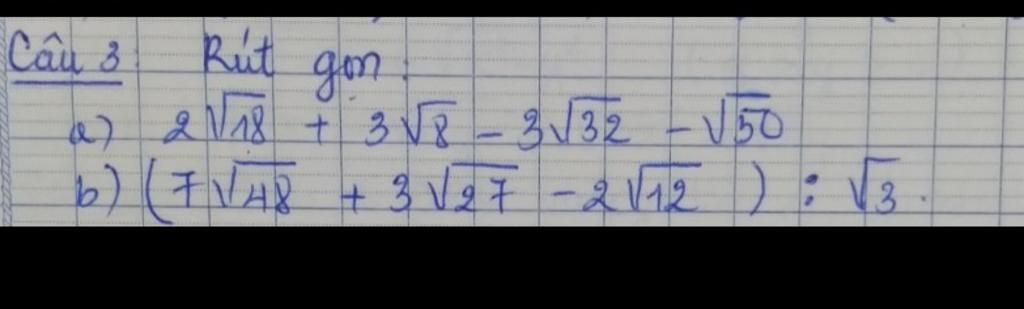 Câu 3: Rút gọn:
a) 2√18 + 3√8 - 3√32 - √50
b) (7√48 + 3√27 - 2√12) : √3.